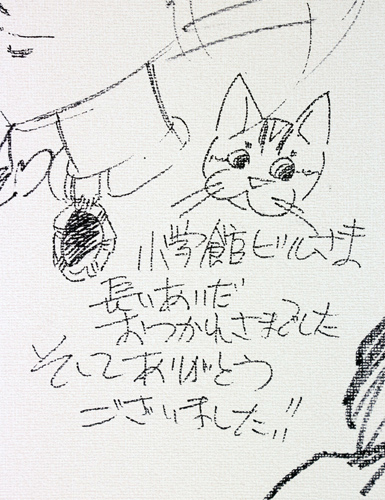 小学館ビルさま
長いあいだ
おつかれさまでした
そしてありがとう
ございました!!